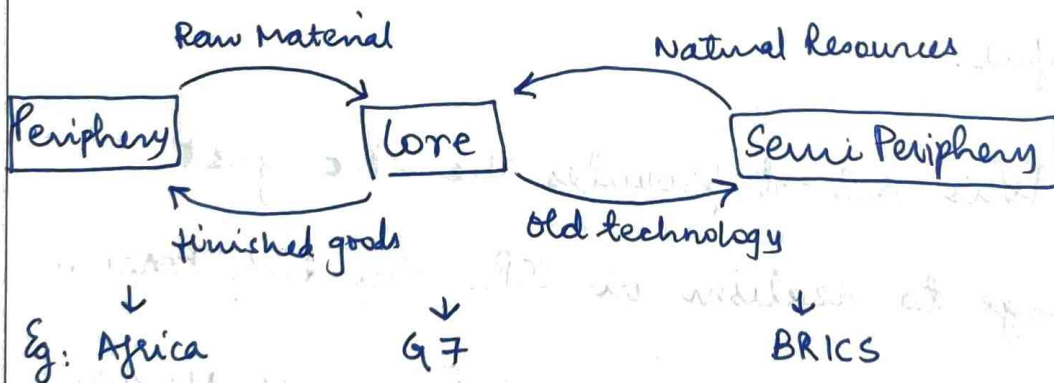 Raw Material Natural Resources
Periphery Core Semi Periphery
finished goods old technology
↓ ↓ ↓
Eg: Africa G7 BRICS